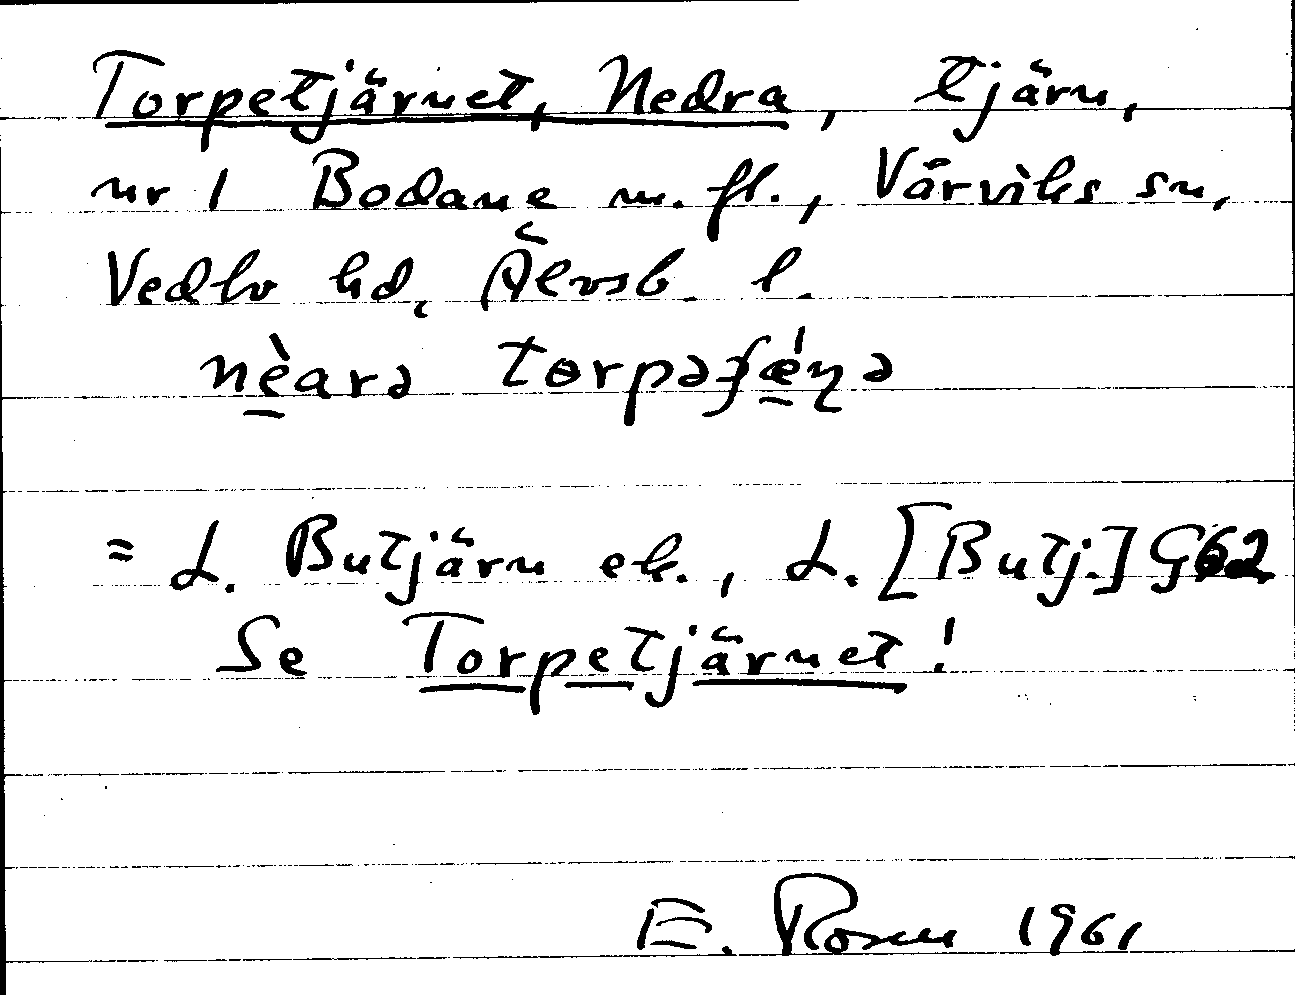 Torpetjärnet, Nedra, tjärn,
nr 1 Bodane m. fl., Vårviks sn,
Vedbo hd, Älvsb. l.
nèarə tɵrpəʃǽɳə
= L. Butjärn ek., L. [Butj.] G62
Se Torpetjärnet!
E. Rosen 1961